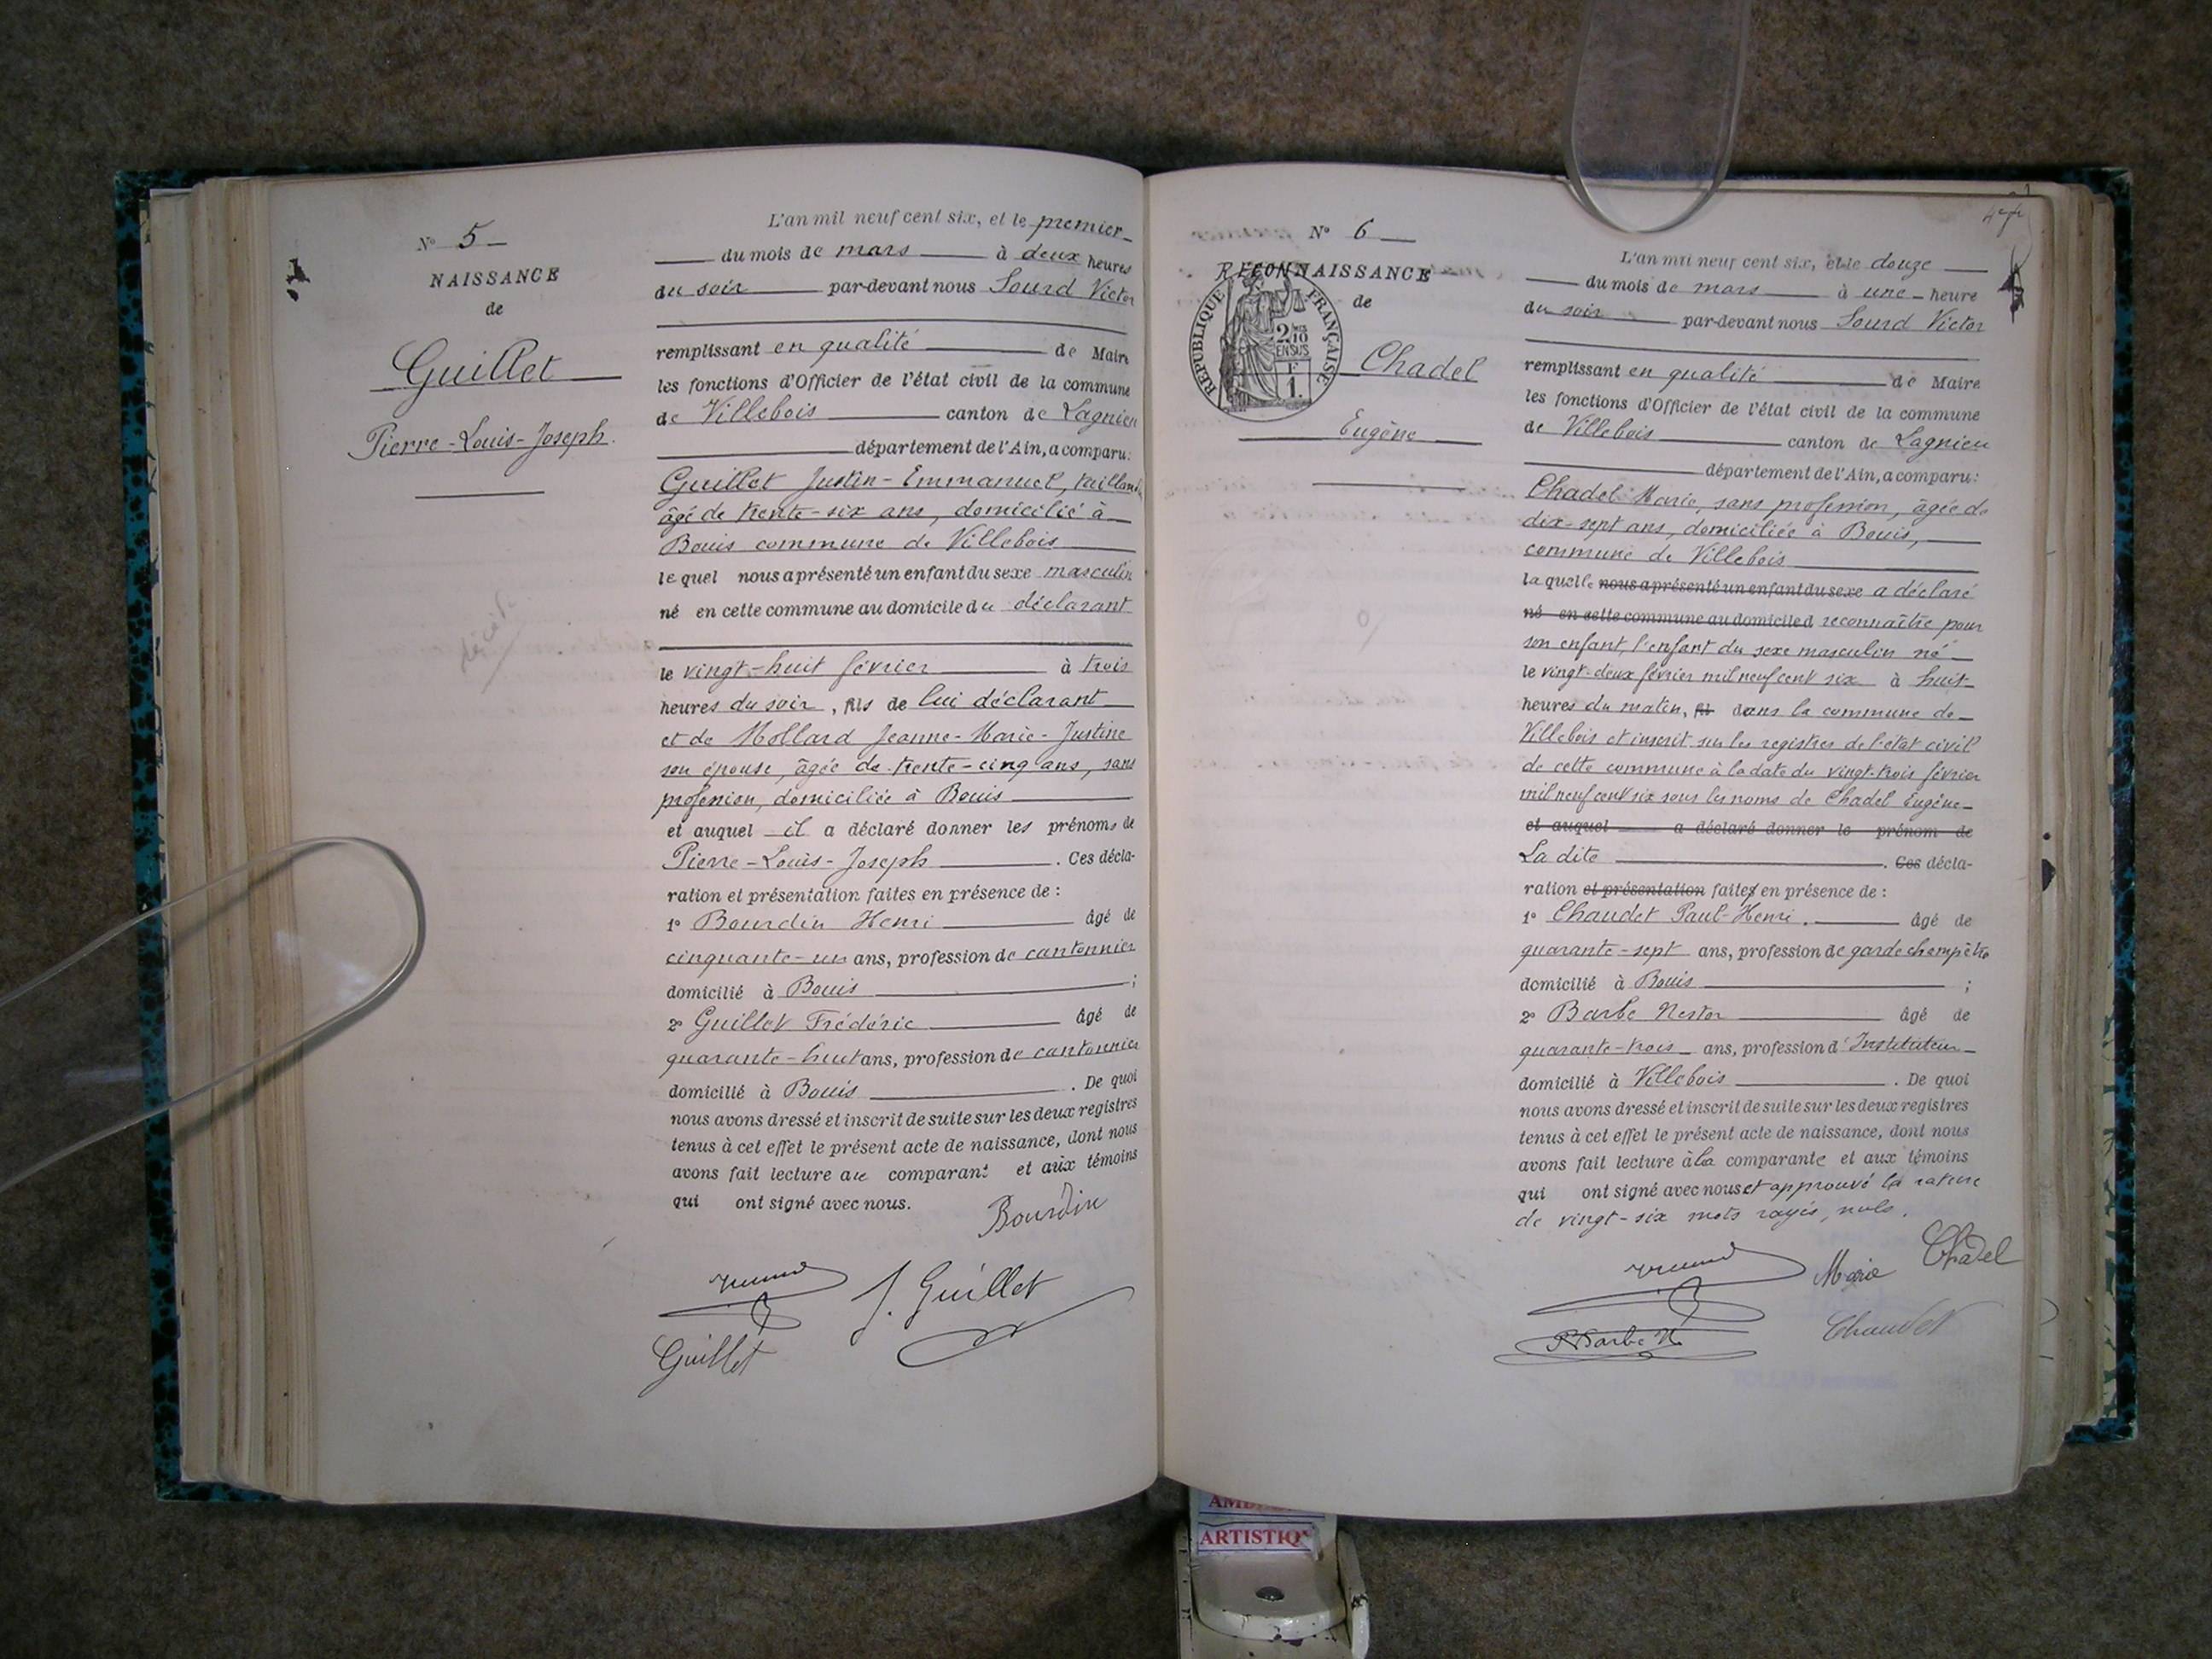 N° 5
NAISSANCE
de
Guillet
Pierre-Louis-Joseph.
L'an mil neuf cent six, et le premier
du mois de mars à deux heures
du soir par-devant nous Sourd Victor
remplissant en qualité de Maire
les fonctions d'Officier de l'état civil de la commune
de Villebois canton de Lagnieu
département de l'Ain, a comparu:
Guillet Justin-Emmanuel,
âgé de trente-six ans, domicilié à
Bouis commune de Villebois
lequel nous a présenté un enfant du sexe masculin
né en cette commune au domicile du déclarant
le vingt-huit février à trois
heures du soir, fils de lui déclarant
et de Mollard Jeanne-Marie-Justine
son épouse, âgée de trente-cinq ans, sans
profession, domiciliée à Bouis
et auquel il a déclaré donner les prénoms de
Pierre-Louis-Joseph. Ces décla-
ration et présentation faites en présence de :
1° Bourdin Henri âgé de
cinquante-un ans, profession de cantonnier
domicilié à Bouis ;
2° Guillet Frédéric âgé de
quarante-huit ans, profession de cantonnier
domicilié à Bouis. De quoi
nous avons dressé et inscrit de suite sur les deux registres
tenus à cet effet le présent acte de naissance, dont nous
avons fait lecture au comparant et aux témoins
qui ont signé avec nous.
Bourdin
J. Guillet
Guillet
N° 6
RECONNAISSANCE
de
REPUBLIQUE FRANÇAISE
2/10
EN SUS
F
1.
Chadel
Eugène
L'an mil neuf cent six, et le douze
du mois de mars à une heure
du soir par-devant nous Sourd Victor
remplissant en qualité de Maire
les fonctions d'Officier de l'état civil de la commune
de Villebois canton de Lagnieu
département de l'Ain, a comparu:
Chadel Marie, sans profession, âgée de
dix-sept ans, domiciliée à Bouis,
commune de Villebois
laquelle nous a présenté un enfant du sexe a déclaré
né en cette commune au domicile d reconnaître pour
son enfant, l'enfant du sexe masculin né
le vingt-deux février mil neuf cent six à huit
heures du matin, fil dans la commune de
Villebois et inscrit sur les registres de l'état civil
de cette commune à la date du vingt-trois février
mil neuf cent six sous les noms de Chadel Eugène
et auquel a déclaré donner le prénom de
La dite. Ces décla-
ration et présentation faites en présence de :
1° Chaudet Paul-Henri. âgé de
quarante-sept ans, profession de garde champêtre
domicilié à Bouis ;
2° Barbe Nestor âgé de
quarante-trois ans, profession d'Instituteur
domicilié à Villebois. De quoi
nous avons dressé et inscrit de suite sur les deux registres
tenus à cet effet le présent acte de naissance, dont nous
avons fait lecture à la comparante et aux témoins
qui ont signé avec nous et approuvé la rature
de vingt-six mots rayés, nuls.
Marie Chadel
Barbe N.
Chaudet
ARTISTIQ